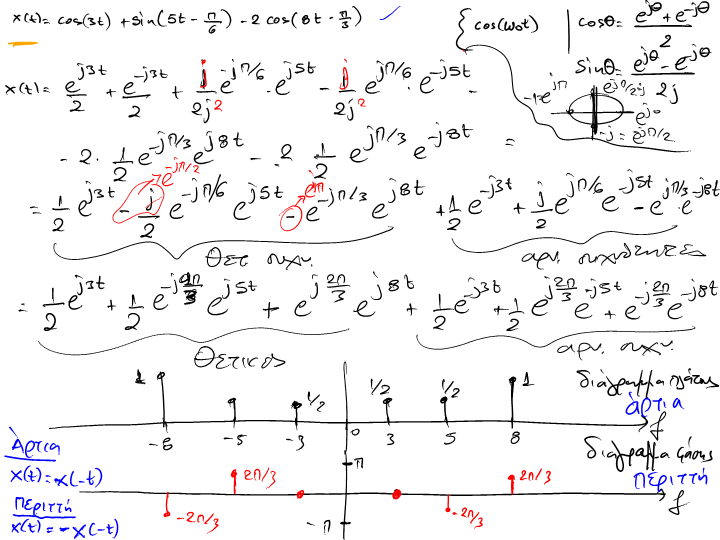 x(t) = cos(3t) + sin(5t - π/6) - 2 cos(8t - π/3) ✓
{ cos(ω₀t)
cosθ = (e^{jθ} + e^{-jθ})/2
sinθ = (e^{jθ} - e^{-jθ})/2j
-1 = e^{jπ}
e^{jπ/2} = j
e^{j0}
-j = e^{-jπ/2}
x(t) = e^{j3t}/2 + e^{-j3t}/2 + j/2j² e^{-jπ/6} · e^{j5t} - j/2j² e^{jπ/6} · e^{-j5t} -
- 2 · 1/2 e^{-jπ/3} e^{j8t} - 2 1/2 e^{jπ/3} e^{-j8t} =
e^{-jπ/2} e^{jπ}
= 1/2 e^{j3t} - j/2 e^{-jπ/6} e^{j5t} - e^{-jπ/3} e^{j8t} + 1/2 e^{-j3t} + j/2 e^{jπ/6} e^{-j5t} - e^{jπ/3} · e^{-j8t}
θετ συχν. αρν. συχνότητες
= 1/2 e^{j3t} + 1/2 e^{-j2π/3} e^{j5t} + e^{j2π/3} e^{j8t} + 1/2 e^{-j3t} + 1/2 e^{j2π/3} e^{-j5t} + e^{-j2π/3} e^{-j8t}
θετικος αρν. συχν.
1 1/2 1/2 1/2 1 διάγραμμα πλάτους
άρτια
-8 -5 -3 0 3 5 8 f
Άρτια
x(t) = x(-t)
Περιττή
x(t) = -x(-t)
διάγραμμα φάσης
περιττή
π
2π/3 2π/3
-2π/3 -2π/3
-π
f